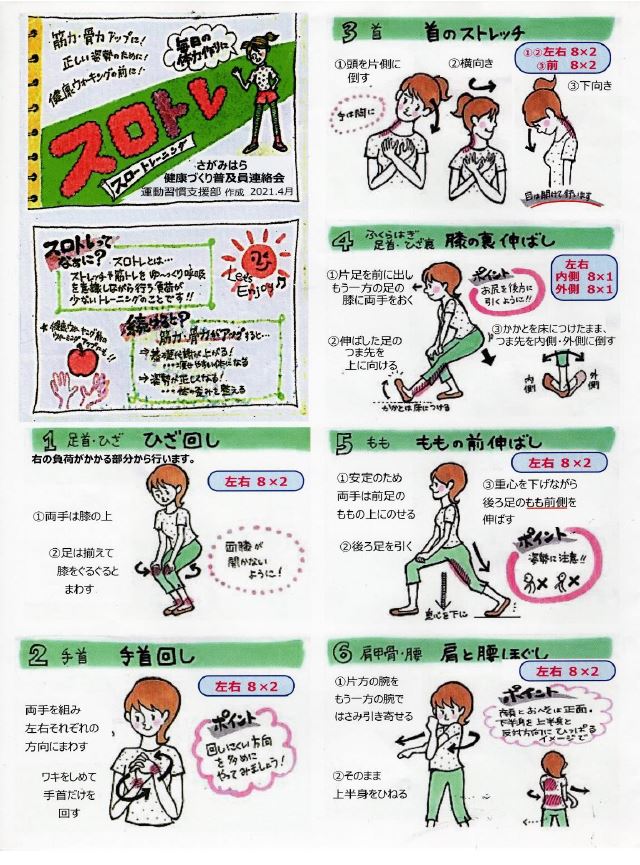 筋力・骨力アップに!
正しい姿勢のために!
健康ウォーキングの前に!
毎日の
体力作りに
スロトレ
スロートレーニング
さがみはら
健康づくり普及員連絡会
運動習慣支援部 作成 2021.4月
スロトレって
なぁに?
スロトレとは…
ストレッチや筋トレをゆ〜っくり呼吸
を意識しながら行う負荷が
少ないトレーニングのことです!!
Let's
Enjoy♪
続けると?
筋力・骨力がアップすると…
→基礎代謝が上がる!
→姿勢が正しくなる!
1 足首・ひざ ひざ回し
右の負荷がかかる部分から行います。
左右 8×2
①両手は膝の上
②足は揃えて
膝をぐるぐると
まわす
両膝が
開かない
ように!
2 手首 手首回し
左右 8×2
両手を組み
左右それぞれの
方向にまわす
ワキをしめて
手首だけを
回す
ポイント
回しにくい方向
を多めに
やってみましょう!
3 首 首のストレッチ
①②左右 8×2
③前 8×2
①頭を片側に
倒す
②横向き
③下向き
手は胸に
目は開けて行います
4 ふくらはぎ
足首・ひざ裏 膝の裏伸ばし
①片足を前に出し
もう一方の足の
膝に両手をおく
ポイント
お尻を後方に
引くように!!
左右
内側 8×1
外側 8×1
②伸ばした足の
つま先を
上に向ける
③かかとを床につけたまま、
つま先を内側・外側に倒す
内側
外側
かかとは床につける
5 もも ももの前伸ばし
左右 8×2
①安定のため
両手は前足の
ももの上にのせる
②後ろ足を引く
③重心を下げながら
後ろ足のもも前側を
伸ばす
ポイント
姿勢に注意!!
重心を下に
6 肩甲骨・腰 肩と腰ほぐし
左右 8×2
①片方の腕を
もう一方の腕で
はさみ引き寄せる
ポイント
顔とおへそは正面。
下半身を上半身と
反対方向にひっぱる
イメージで
②そのまま
上半身をひねる